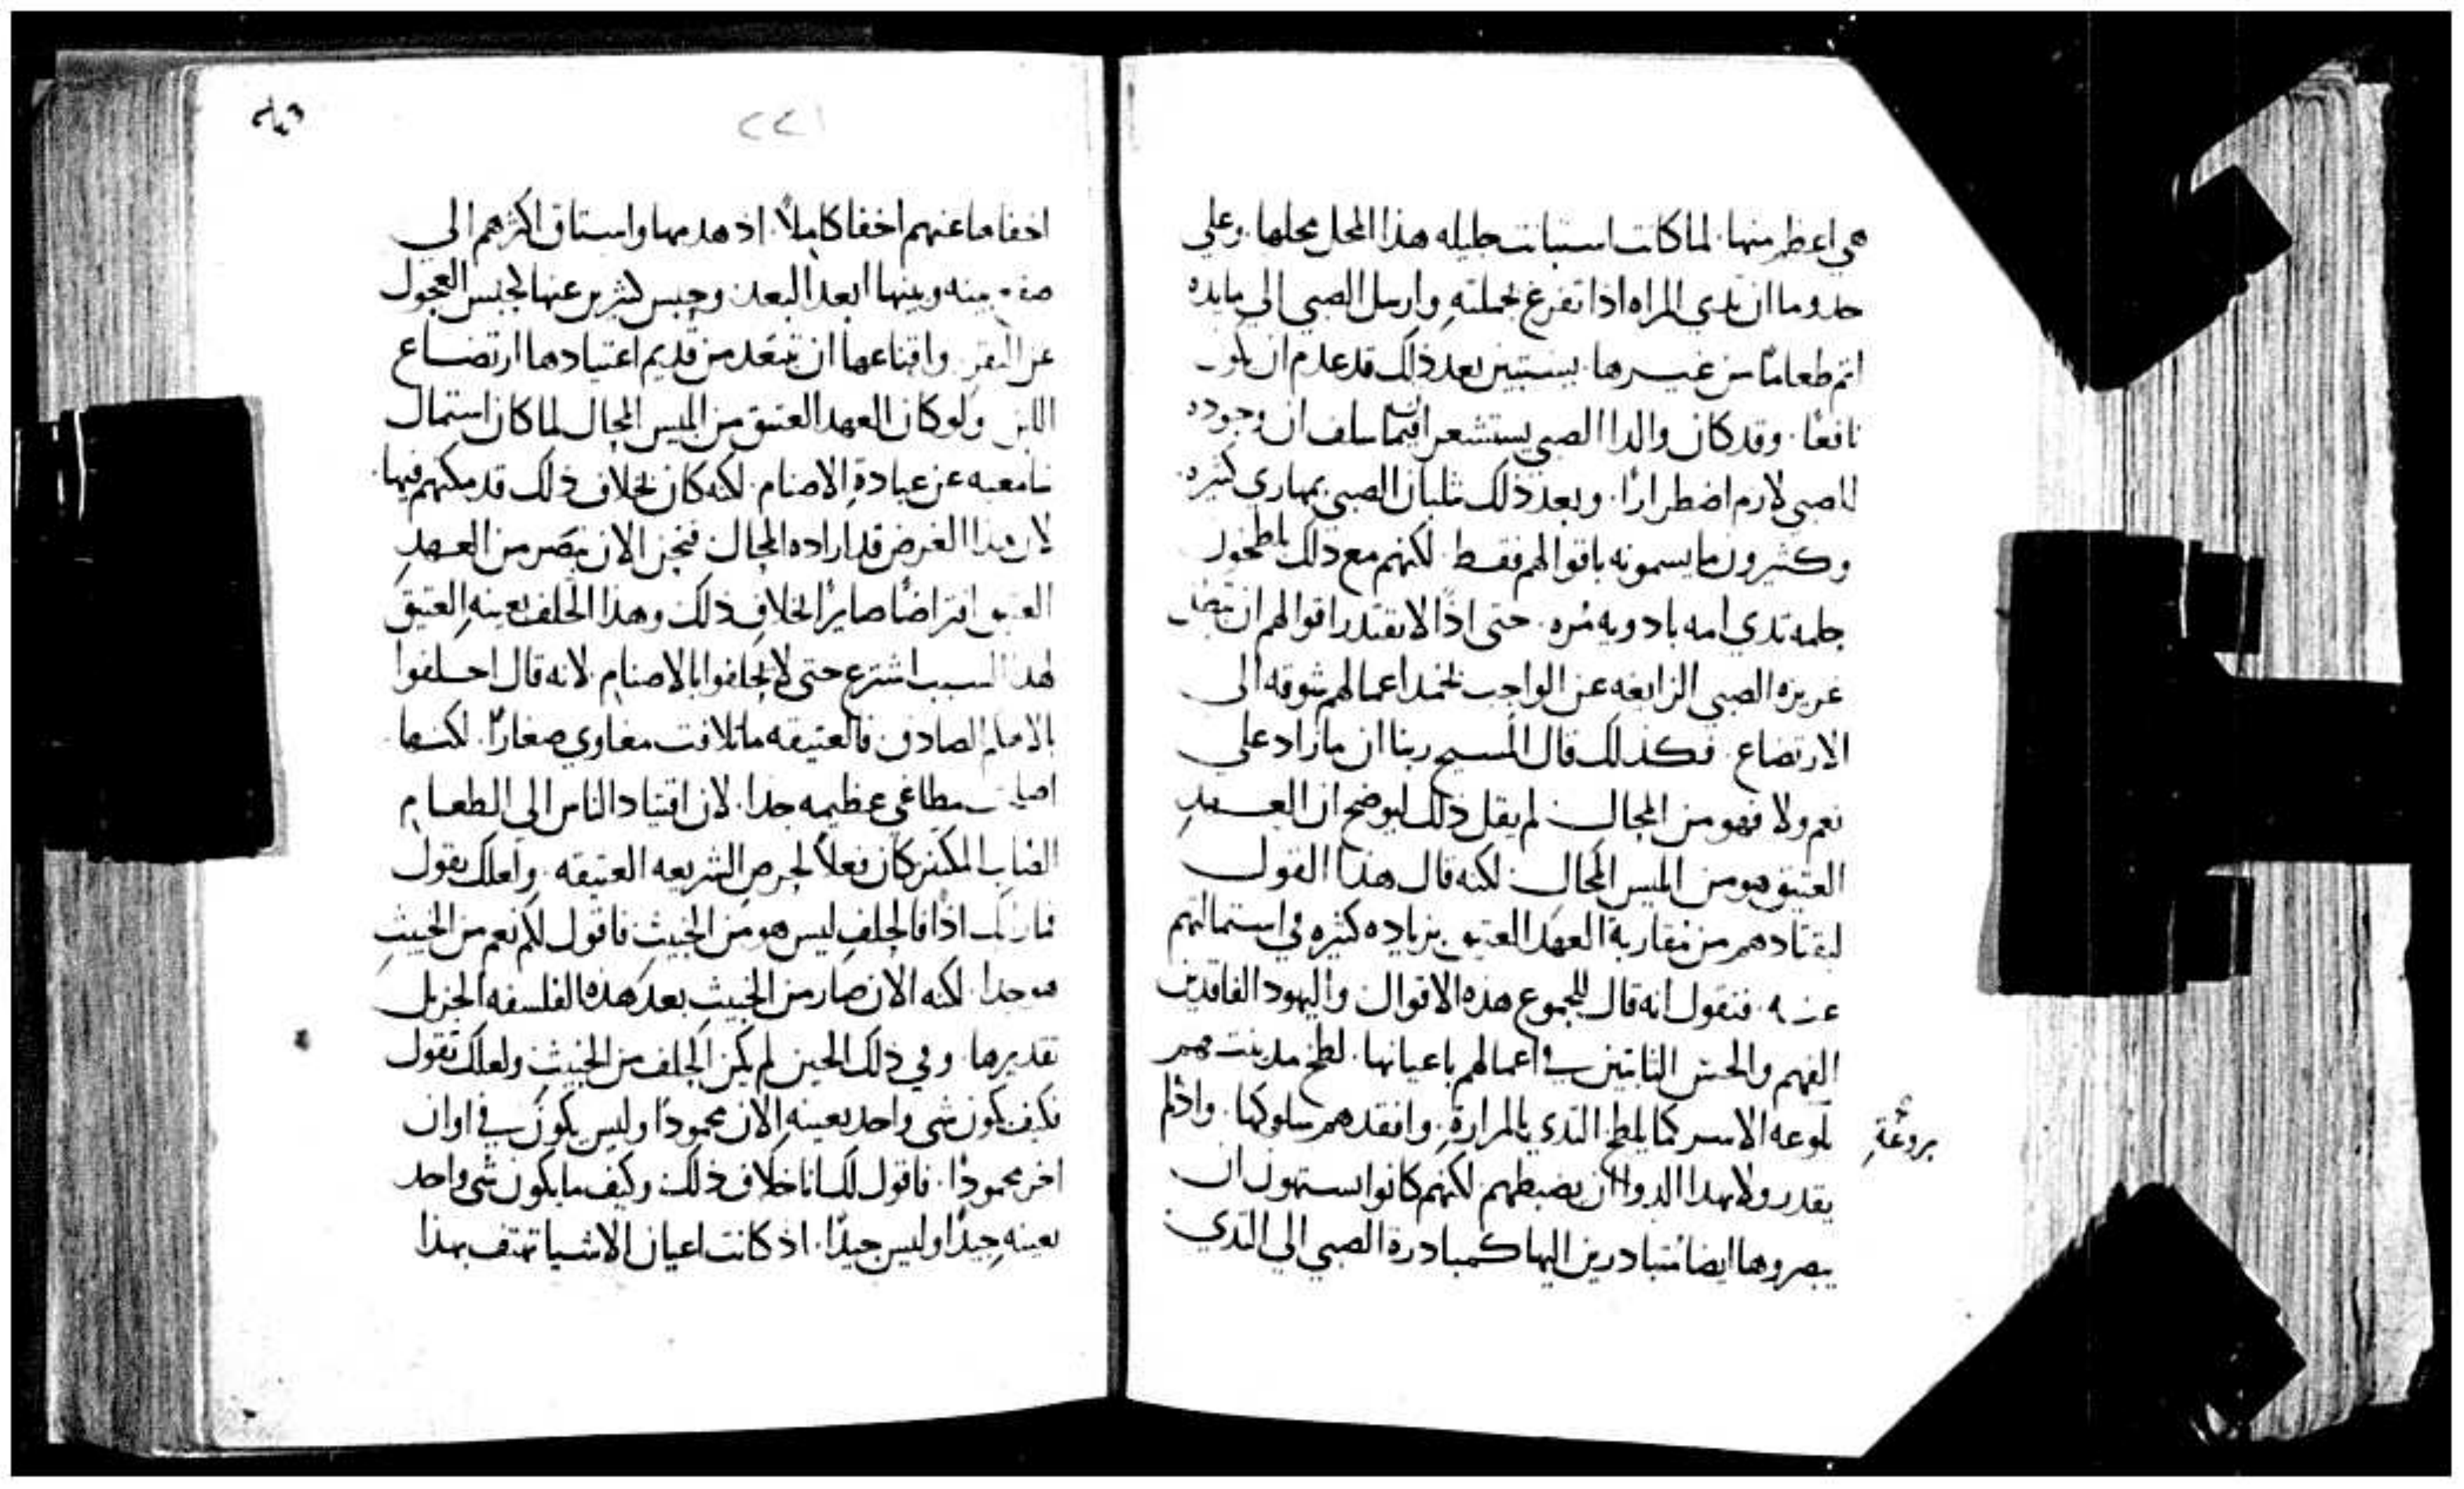 هي اعظم منها. لما كانت استبانت جليله هذا المحل محلها. وعلي
حذوما ان ثدي المراه اذا تفرغ بجملته وارسل الصبي الي مايده
اتم طعاما من غيرها. يستبين بعد ذلك قد عدم ان يكون
نافعا. وقد كان والدا الصبي يستشعران فيما سلف ان وجوده
للصبي لازم اضطرارا. وبعد ذلك يثلبان الصبي بمهازي كثيره
وكثيرون ما يسمونه باقوالهم فقط. لكنهم مع ذلك يلطخون
حلمه ثدي امه بادويه مره. حتى اذا لا تقتدر اقوالهم ان تضبط
غريزه الصبي الزايغه عن الواجب تخمد اعمالهم شوقه الى
الارتضاع. فكذلك قال المسيح ربنا ان ما زاد علي
نعم ولا فهو من المحال. لم يقل ذلك ليوضح ان العهد
العتيق هو من ابليس المحال. لكنه قال هذا القول
ليقتادهم من مقاربة العهد العتيق بزياده كثيره في استمالتهم
عنه. فنقول انه قال للجموع هذه الاقوال واليهود الفاقدين
الفهم والحس الثابتين في اعمالهم باعيانها. لطخ مدينتهم
بلوعه الاسر كما يلطخ الثدي بالمرارة. وافقدهم سلوكها. واذ لم
بروعة
يقدر ولا بهذا الدوا ان يضبطهم لكنهم كانوا يشتهون ان
يبصروها ايضا متبادرين اليها كمبادرة الصبي الي الثدي
٢٢١
اخفاها عنهم اخفا كاملا. اذ هدمها واستاق اكثرهم الي
بينه وبينها ابعد البعد. وحبس كثيرين عنها كحبس العجول
عن البقر. واقناعها ان تبتعد من قديم اعتيادها ارتضاع
اللبن ولو كان العهد العتيق من ابليس المحال لما كان استمال
سامعيه عن عبادة الاصنام. لكنه كان بخلاف ذلك قد مكنهم فيها.
لان هذا الغرض قد اراده المحال. فنحن الان نبصر من العهد
العتيق افتراضا صايرا بخلاف ذلك. وهذا الحلف بعينه العتيق
لهذا السبب اشترع حتى لا يحلفوا بالاصنام. لانه قال احلفوا
بالاهكم الصادق. فالعتيقه ما تلافت مغاوي صغارا. لكنها
اصلحت مطاغي عظيمه جدا. لان اقتياد الناس الي الطعام
الصايب المكين كان فعلا لحرص الشريعه العتيقه. ولعلك تقول
اذا فالحلف ليس هو من الخبيث فاقول لكم نعم من الخبيث
هو جدا. لكنه الان صار من الخبيث بعد هذه الفلسفه الجزيل
تقديرها. وفي ذلك الحين لم يكن الحلف من الخبيث ولعلك تقول
فكيف يكون شي واحد بعينه الان محمودا وليس يكون في اوان
اخر محمودا. فاقول لك انا خلاف ذلك. وكيف ما يكون شي واحد
بعينه جيدا وليس جيدا. اذ كانت اعيان الاشيا تهتف بهذا